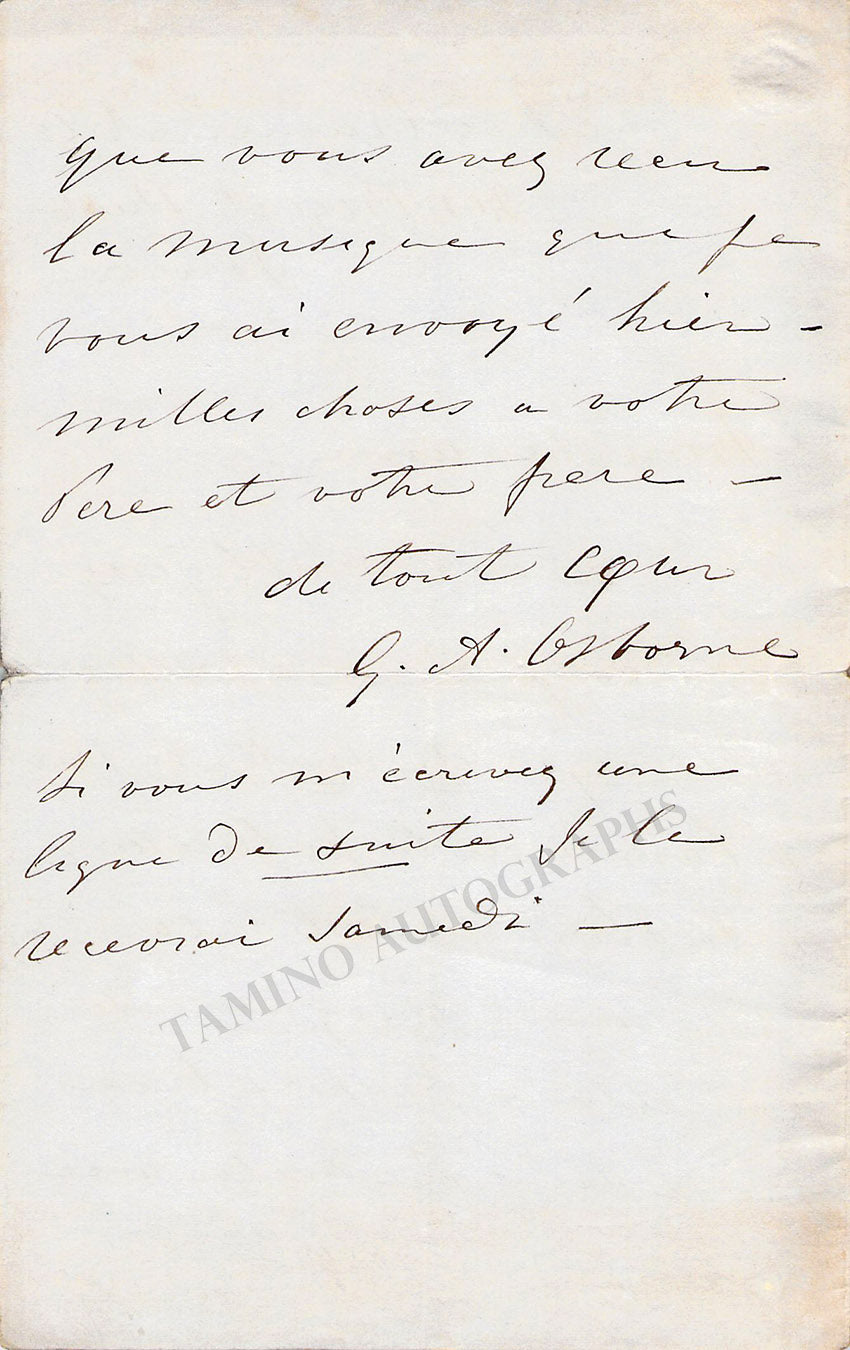 que vous avez recu
la musique que je
vous ai envoyé hier -
milles choses a votre
Pere et votre frere -
de tout cœur
G. A. Osborne
Si vous m'écrivez une
ligne de suite je la
recevrai Samedi -
TAMINO AUTOGRAPHS